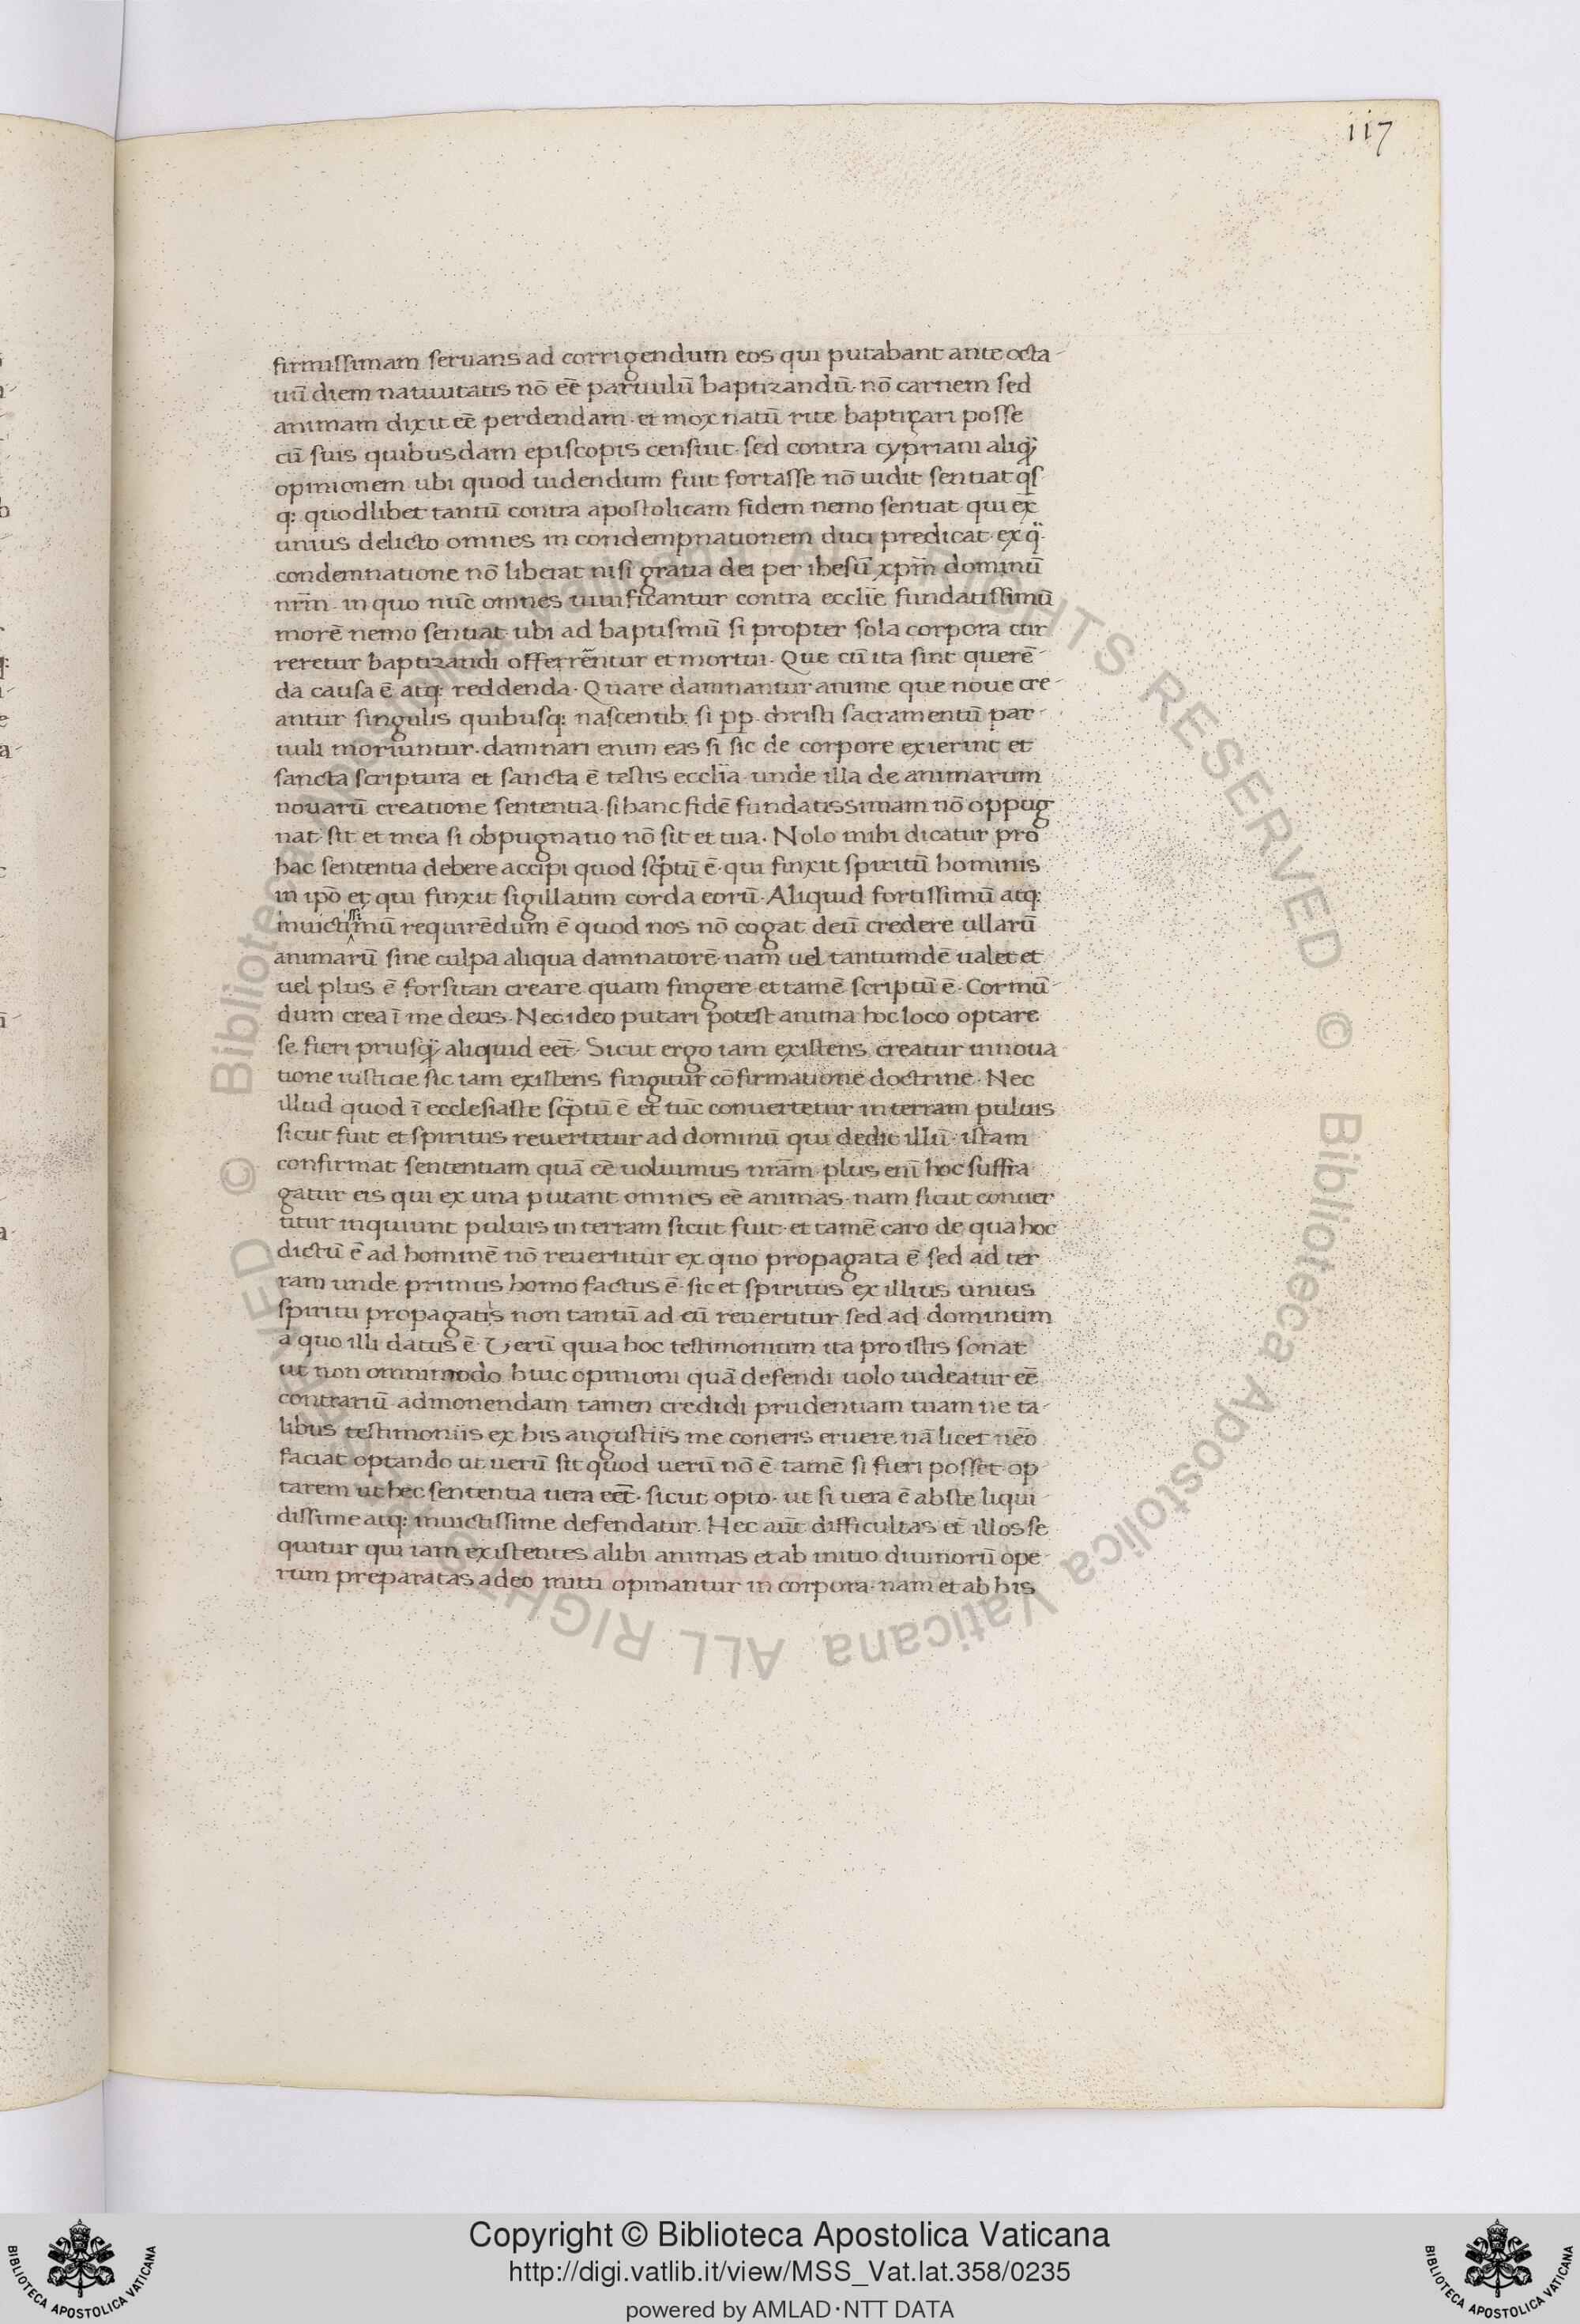 117
firmissimam seruans ad corrigendum eos qui putabant ante octa-
uū diem natiuitatis nō eē paruulū baptizandū. nō carnem sed
animam dixit eē perdendam. et mox natū rite baptiçari posse
cū suis quibusdam episcopis censuit. sed contra cypriani aliqͣ
opinionem ubi quod uidendum fuit fortasse nō uidit sentiat qs
q: quodlibet tantū contra apostolicam fidem nemo sentiat. qui ex
unius delicto omnes in condempnationem duci predicat. ex qͣ
condemnatione nō liberat nisi gratia dei per ihesū xpm̄ dominū
nrm̄. in quo nūc omnes uiuificantur contra ecclīe fundatissimū
morē nemo sentiat. ubi ad baptismū si propter sola corpora cur
reretur baptizandi offerrentur et mortui. Que cū ita sint querē-
da causa ē atq: reddenda. Quare damnantur anime que noue cre-
antur singulis quibusq: nascentib; si pp. christi sacramentū par-
uuli moriuntur. damnari enim eas si sic de corpore exierint et
sancta scriptura et sancta ē testis ecclīa. unde illa de animarum
nouarū creatione sententia. si hanc fidē fundatissimam nō oppug
nat. sit et mea si obpugnatio nō sit et tua. Nolo mihi dicatur pro
hac sententia debere accipi quod scptū ē. qui finxit spiritū hominis
in ipō et qui finxit sigillatim corda eorū. Aliquid fortissimū atq:
inuictissimū requirēdum ē quod nos nō cogat deū credere ullarū
animarū sine culpa aliqua damnatorē. nam uel tantumdē ualet et
uel plus ē forsitan creare quam fingere et tamē scriptū ē. Cor mū-
dum crea ī me deus. Nec ideo putari potest anima hoc loco optare
se fieri priusqͣ aliquid eēt. Sicut ergo iam existens creatur innoua
tione iusticie sic iam existens fingitur cōfirmatione doctrine. Nec
illud quod ī ecclesiaste scptū ē et tūc conuertetur in terram puluis
sicut fuit et spiritus reuertetur ad dominū qui dedit illū. istam
confirmat sententiam quā eē uoluimus nrām. plus enī hoc suffra
gatur eis qui ex una putant omnes eē animas. nam sicut conuer
titur inquiunt puluis in terram sicut fuit. et tamē caro de qua hoc
dictū ē ad hominē nō reuertitur ex quo propagata ē sed ad ter
ram unde primus homo factus ē. sic et spiritus ex illius unius
spiritu propagatis non tantū ad eū reuertitur sed ad dominum
a quo illi datus ē. Verū quia hoc testimonium ita pro istis sonat
ut non omnimodo huic opinioni quā defendi uolo uideatur eē
contrariū. admonendam tamen credidi prudentiam tuam ne ta-
libus testimoniis ex his angustiis me coneris eruere nā licet nēo
faciat optando ut uerū sit quod uerū nō ē. tamē si fieri posset op
tarem ut hec sententia uera eēt. sicut opto. ut si uera ē abste liqui
dissime atq: inuictissime defendatur. Hec aūt difficultas et illos se
quitur qui iam existentes alibi animas et ab initio diuinorū ope-
rum preparatas adeo mitti opinantur in corpora. nam et ab his
© Biblioteca Apostolica Vaticana ALL RIGHTS RESERVED © Biblioteca Apostolica Vaticana ALL RIGHTS RESERVED
Copyright © Biblioteca Apostolica Vaticana
http://digi.vatlib.it/view/MSS_Vat.lat.358/0235
powered by AMLAD·NTT DATA
BIBLIOTECA APOSTOLICA VATICANA
BIBLIOTECA APOSTOLICA VATICANA